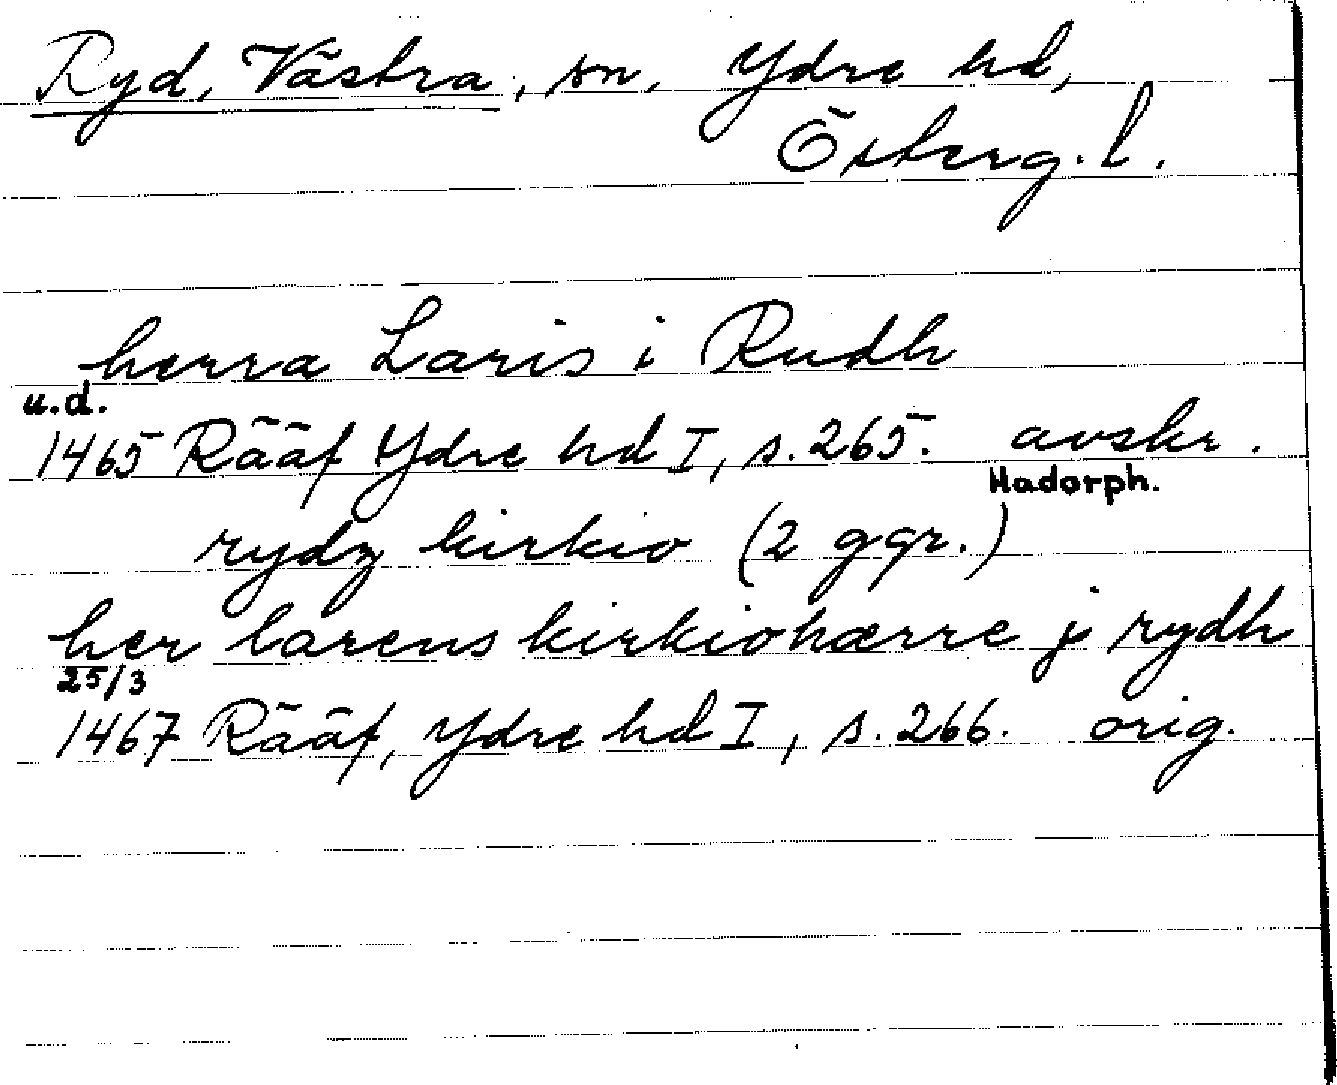 Ryd, Västra, sn, Ydre hd,
Österg.l.
herra Laris i Rudh
u.d.
1465 Rääf Ydre hd I, s. 265. avskr.
Hadorph.
rydz kirkio (2 ggr.)
her larens kirkiohærre j rydh
25/3
1467 Rääf, Ydre hd I, s. 266. orig.